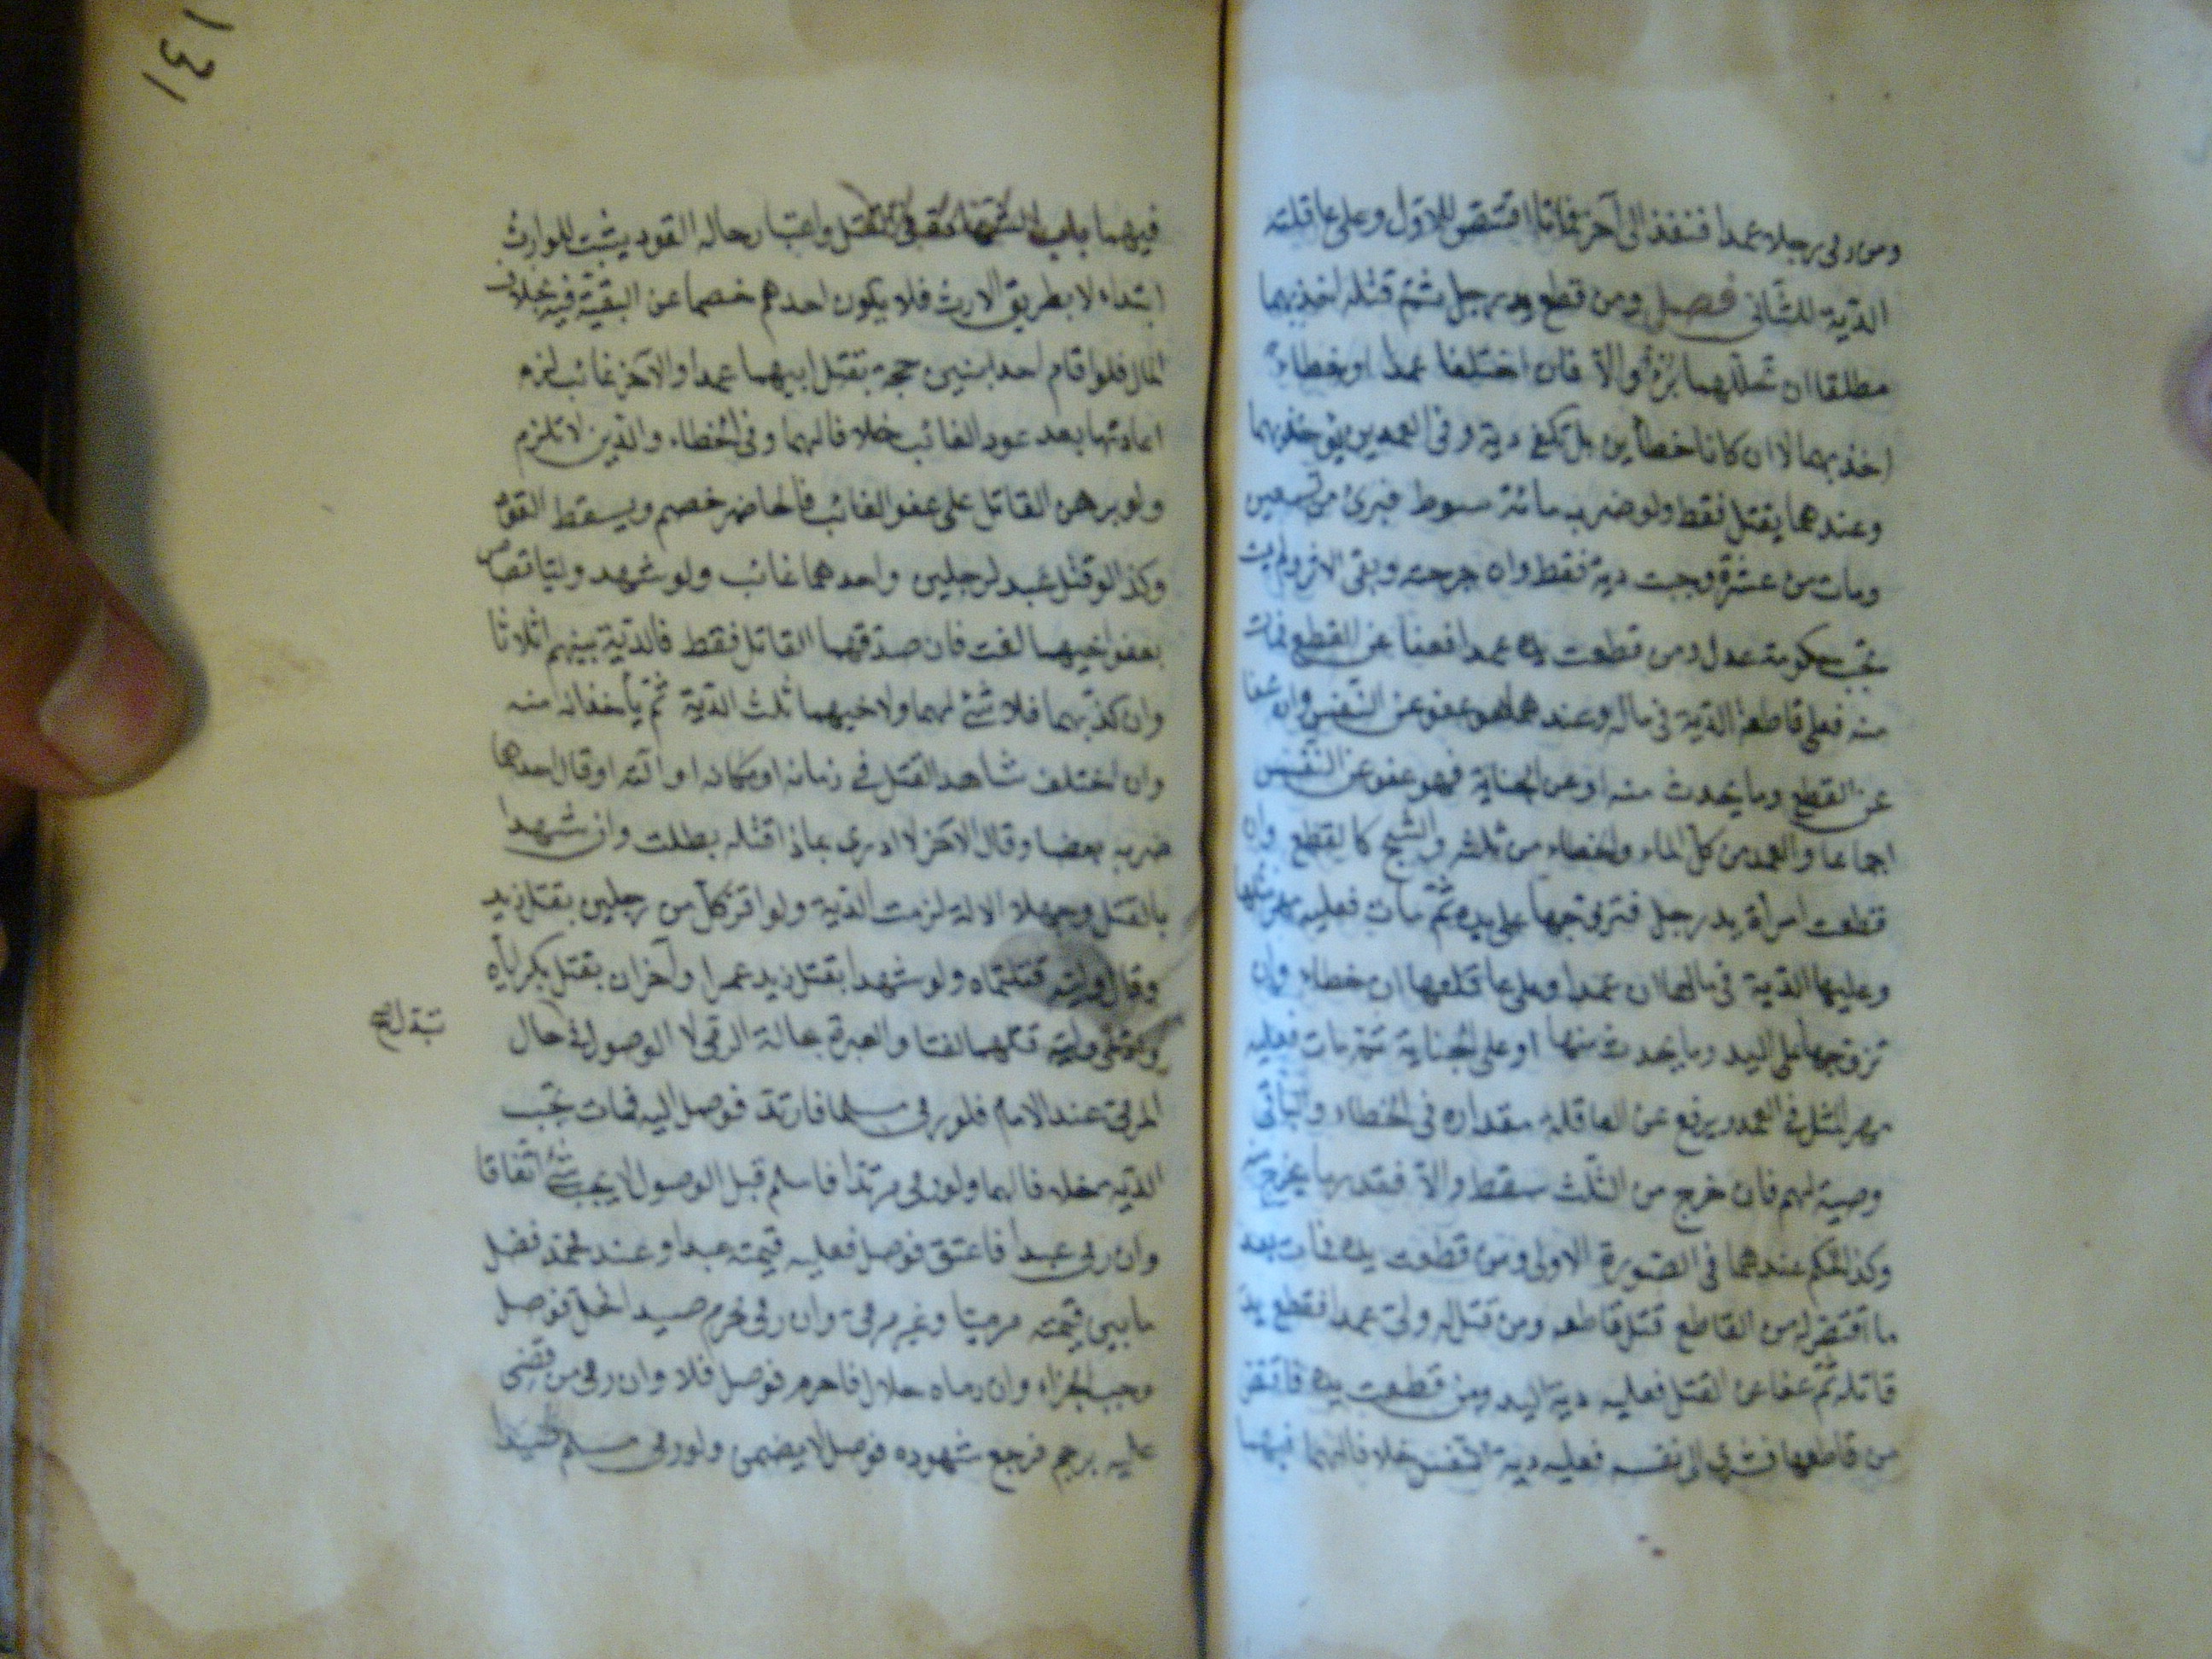 ومن رمى رجلا عمدا فنفذ الى آخر فماتا اقتص للاول وعلى عاقلته
الدية للثانى فصل ومن قطع يد رجل ثم قتله اخذ بهما
مطلقا ان تخللهما برء والا فان اختلفا عمدا وخطاء
اخذ بهما لا ان كانا خطأين بل تكفى دية وفى العمدين يؤخذ بهما
وعندهما يقتل فقط ولو ضربه مائة سوط فبرئ من تسعين
ومات من عشرة وجبت دية فقط وان جرحته وبقى الاثر ولم يمت
تجب حكومة عدل ومن قطعت يده عمدا فعفا عن القطع فمات
منه فعلى قاطعه الدية فى ماله وعندهما هو عفو عن النفس وان عفا
عن القطع وما يحدث منه او عن الجناية فهو عفو عن النفس
اجماعا والعمد من كل الماء والخطاء من ثلثه والشج كالقطع وان
قطعت امرأة يد رجل فتزوجها على يده ثم مات فعليه مهر مثلها
وعليها الدية فى مالها ان عمدا وعلى عاقلتها ان خطاء وان
تزوجها على اليد وما يحدث منها او على الجناية ثم مات فعليه
مهر المثل فى العمد ويرفع عن العاقلة مقداره فى الخطاء والباقى
وصية لهم فان خرج من الثلث سقط والا فقدر ما يخرج منه
وكذا الحكم عندهما فى الصورة الاولى ومن قطعت يده فمات بعد
ما اقتص له من القاطع قتل قاطعه ومن قتل له ولى عمدا فقطع يد
قاتله ثم عفا عن القتل فعليه دية اليد ومن قطعت يده فاقتص
من قاطعها فسرى الى نفسه فعليه دية النفس خلافا لهما فيهما
١٤١
فيهما باب الشهادة فى القتل واعتبار حاله القود يثبت للوارث
ابتداء لا بطريق الارث فلا يكون احدهم خصما عن البقية فيه بخلاف
المال فلو اقام احد ابنين حجة بقتل ابيهما عمدا والآخر غائب لزم
اعادتها بعد عود الغائب خلافا لهما وفى الخطاء والدين لا تلزم
ولو برهن القاتل على عفو الغائب فالحاضر خصم ويسقط القود
وكذا لو قتل عبد لرجلين واحدهما غائب ولو شهد وليا قصاص
بعفو اخيهما لغت فان صدقهما القاتل فقط فالدية بينهم اثلاثا
وان كذبهما فلا شئ لهما ولاخيهما ثلث الدية ثم يأخذانه منه
وان اختلف شاهد القتل فى زمانه او مكانه او آلته او قال احدهما
ضربه بعصا وقال الآخر لا ادرى بماذا قتله بطلت وان شهدا
بالقتل وجهلا الالة لزمت الدية ولو اقر كل من رجلين بقتل زيد
وقال وليه قتلتماه ولو شهدا بقتل زيد عمرا وآخران بقتل بكر اياه
وقال وليه قتلهما لغتا والعبرة بحالة الرمى لا الوصول فى حال
المرمى عند الامام فلو رمى مسلما فارتد فوصل اليه فمات تجب
الدية خلافا لهما ولو رمى مرتدا فاسلم قبل الوصول لا يجب شئ اتفاقا
وان رمى عبدا فاعتق فوصل فعليه قيمته عبدا وعند محمد فضل
ما بين قيمته مرميا وغير مرمى وان رمى محرم صيدا فحل فوصل
وجب الجزاء وان رماه حلال فاحرم فوصل فلا وان رمى من قضى
عليه برجم فرجع شهوده فوصل لا يضمن ولو رمى مسلم صيدا